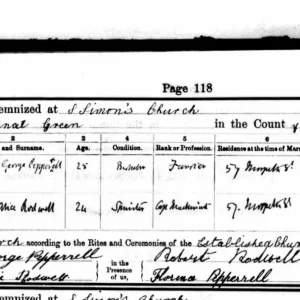 Page 118
emnized at S Simon's Church
nal Green in the Count
2. 3. 4. 5. 6.
and Surname. Age. Condition. Rank or Profession. Residence at the time of Mar
George Pepperell 25 Bachelor Furrier 57 Morpeth St
Alice Rodwell 24 Spinster Cap Machinist 57. Morpeth St
rch according to the Rites and Ceremonies of the Established Chur
orge Pepperrell in the Presence of us, Robert Rodwell
Rodwell Florence Pepperrell
emnized at S Simon's Church